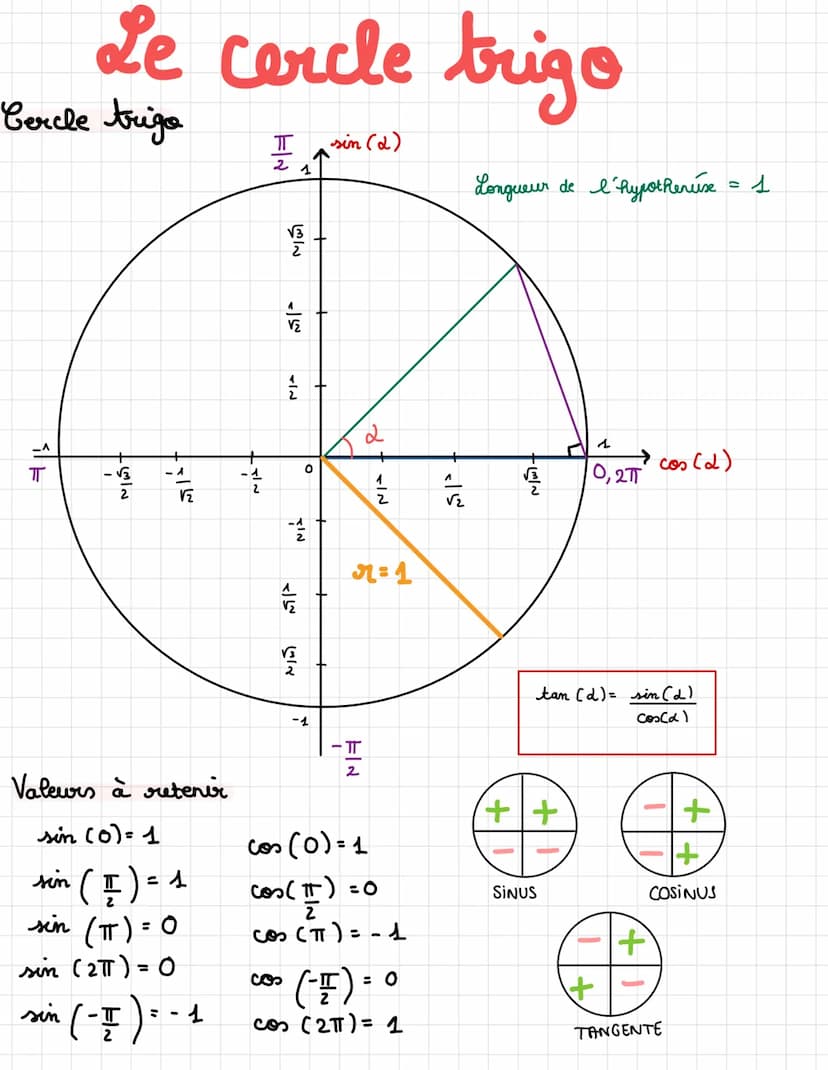 Le cercle trigo
Cercle trigo
π/2
sin(α)
1
Longueur de l'hypothénuse = 1
√3/2
1/√2
1/2
α
-1
1
π
-√3/2
-1/√2
-1/2
0
1/2
1/√2
√3/2
0, 2π
cos(α)
-1/2
1/√2
√3/2
-1
r=1
-π/2
tan(α)= sin(α)/cos(α)
Valeurs à retenir
sin(0)=1
sin(π/2)=1
sin(π)=0
sin(2π)=0
sin(-π/2)=-1
cos(0)=1
cos(π/2)=0
cos(π)=-1
cos(-π/2)=0
cos(2π)=1
+ +
- -
SINUS
- +
- +
COSINUS
- +
+ -
TANGENTE